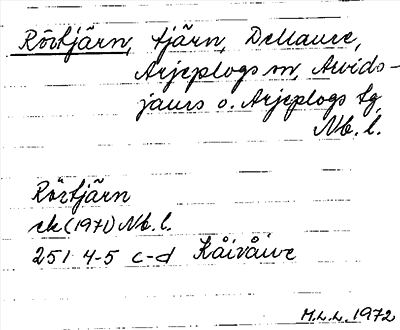 Rörtjärn, tjärn, Dellaure,
Arjeplogs sn, Arvids-
jaurs o. Arjeplogs tg,
Nb. l.
Rörtjärn
ek (1971) Nb. l.
251 4-5 c-d Kåivåive
M.L.L. 1972